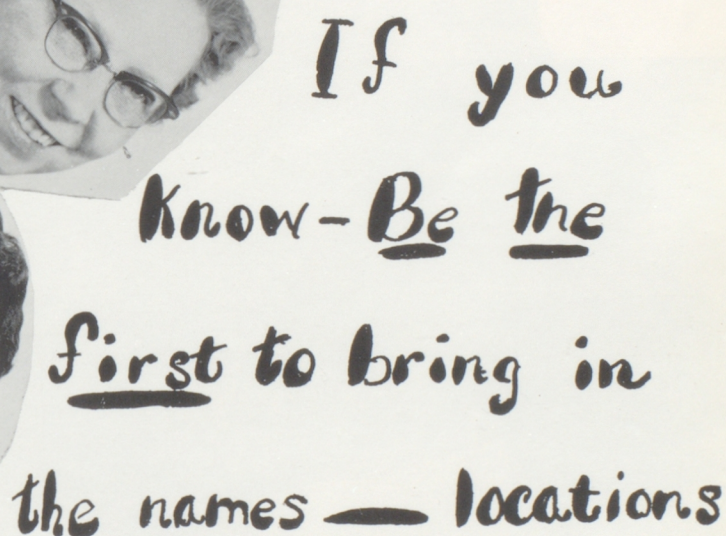 If you
Know - Be the
first to bring in
the names — locations